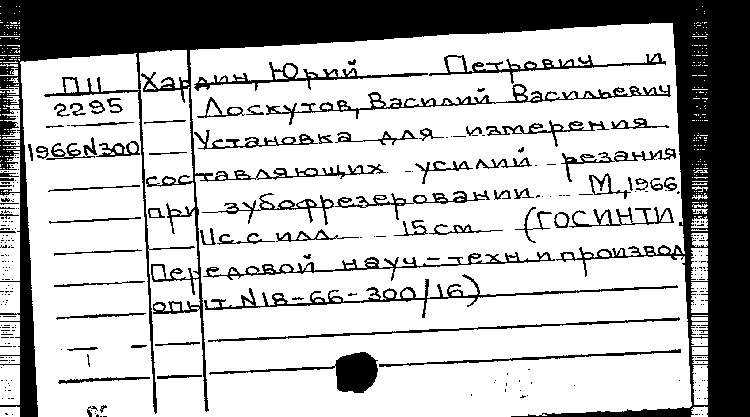 П11 Хардин, Юрий Петрович и
2295 Лоскутов, Василий Васильевич
1966N300 Установка для измерения
составляющих усилий резания
при зубофрезеровании. М., 1966.
11с. с илл. 15см. (ГОСИНТИ.
Передовой науч-техн. и производ.
опыт. N18-66-300/16)